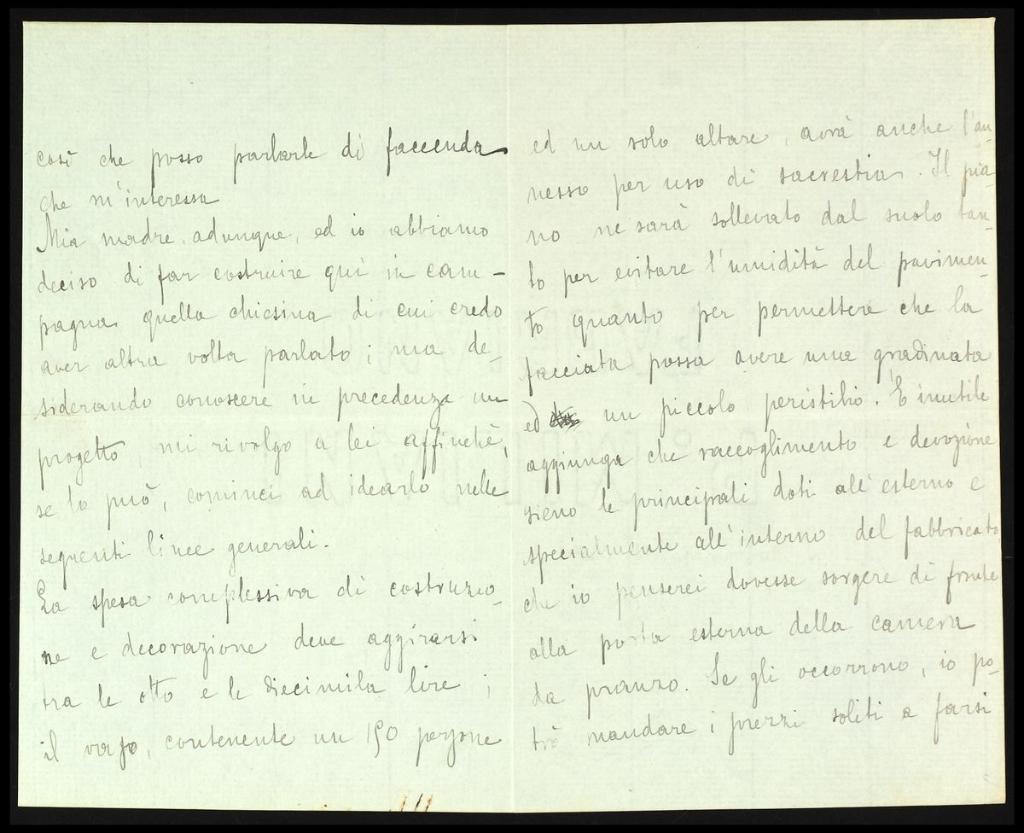 così che posso parlarle di faccenda
che m'interessa
Mia madre, adunque, ed io abbiamo
deciso di far costruire qui in cam-
pagna quella chiesina di cui credo
aver altra volta parlato; ma de-
siderando conoscere in precedenza un
progetto mi rivolgo a lei affinchè,
se lo può, cominci ad idearlo nelle
seguenti linee generali.
La spesa complessiva di costruzio-
ne e decorazione deve aggirarsi
tra le otto e le diecimila lire;
il vaso, contenente un 150 persone
ed un solo altare, avrà anche l'an
nesso per uso di sacrestia. Il pia-
no ne sarà sollevato dal suolo tan-
to per evitare l'umidità del pavimen-
to quanto per permettere che la
facciata possa avere una gradinata
ed un piccolo peristilio. È inutile
aggiunga che raccoglimento e devozione
sieno le principali doti all'esterno e
specialmente all'interno del fabbricato
che io penserei dovesse sorgere di fronte
alla porta esterna della camera
da pranzo. Se gli occorrono, io po-
trò mandare i prezzi soliti a farsi